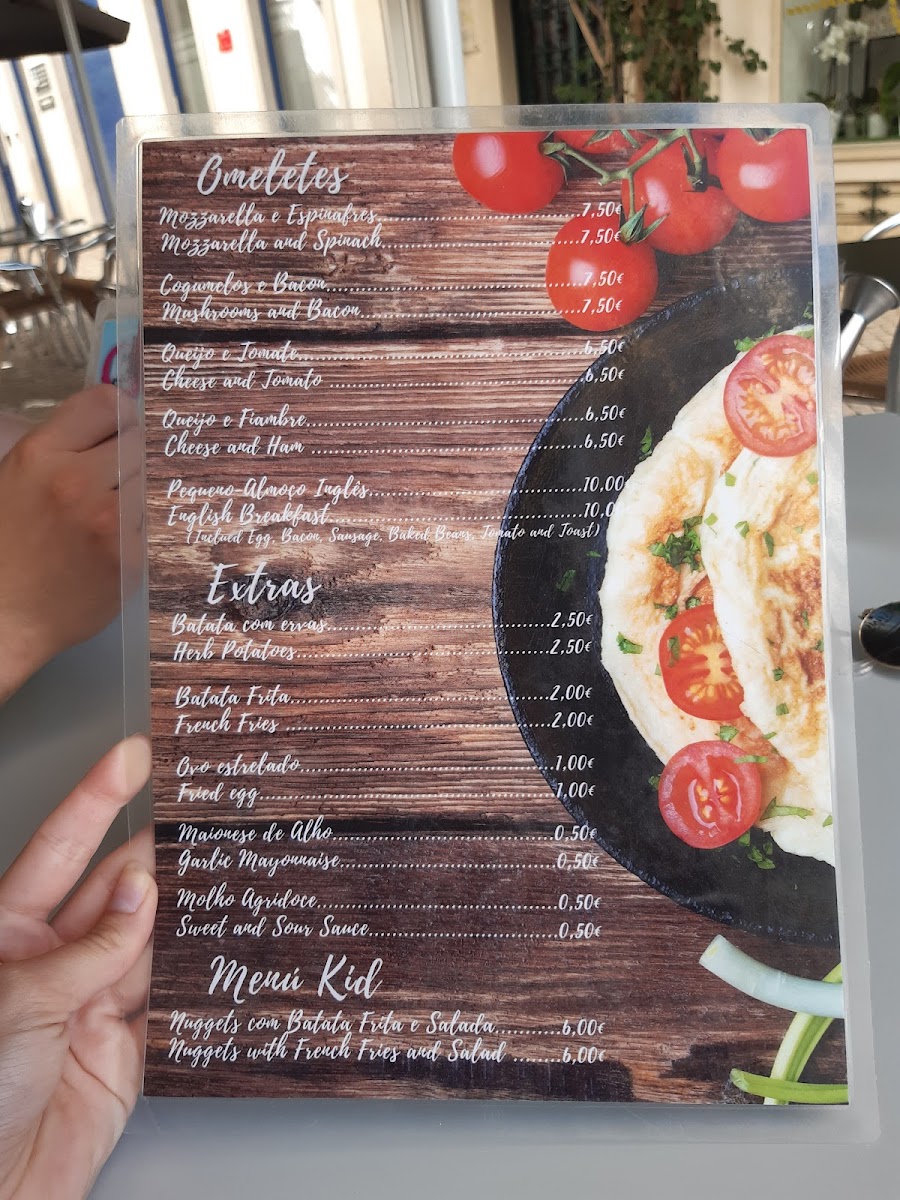 Omeletes
Mozzarella e Espinafres......7,50€
Mozzarella and Spinach......7,50€
Cogumelos e Bacon......7,50€
Mushrooms and Bacon......7,50€
Queijo e Tomate......6,50€
Cheese and Tomato ......6,50€
Queijo e Fiambre......6,50€
Cheese and Ham ......6,50€
Pequeno-Almoço Inglês......10,00
English Breakfast......10,00
(Inclued Egg, Bacon, Sausage, Baked Beans, Tomato and Toast)
Extras
Batata com ervas......2,50€
Herb Potatoes......2,50€
Batata Frita......2,00€
French Fries ......2,00€
Ovo estrelado......1,00€
Fried egg......1,00€
Maionese de Alho......0,50€
Garlic Mayonnaise......0,50€
Molho Agridoce......0,50€
Sweet and Sour Sauce......0,50€
Menú Kid
Nuggets com Batata Frita e Salada......6,00€
Nuggets with French Fries and Salad ......6,00€